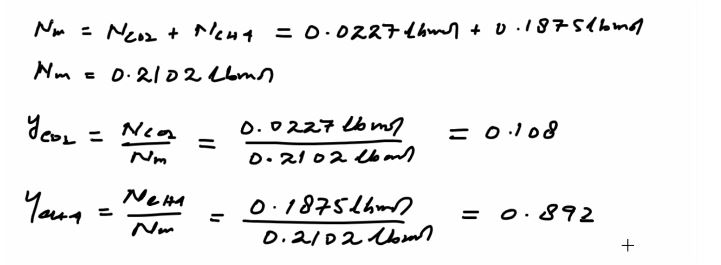 Nm = NCO2 + NCH4 = 0.0227 lbmol + 0.1875 lbmol
Nm = 0.2102 lbmol
yCO2 = NCO2 / Nm = 0.0227 lbmol / 0.2102 lbmol = 0.108
yCH4 = NCH4 / Nm = 0.1875 lbmol / 0.2102 lbmol = 0.892